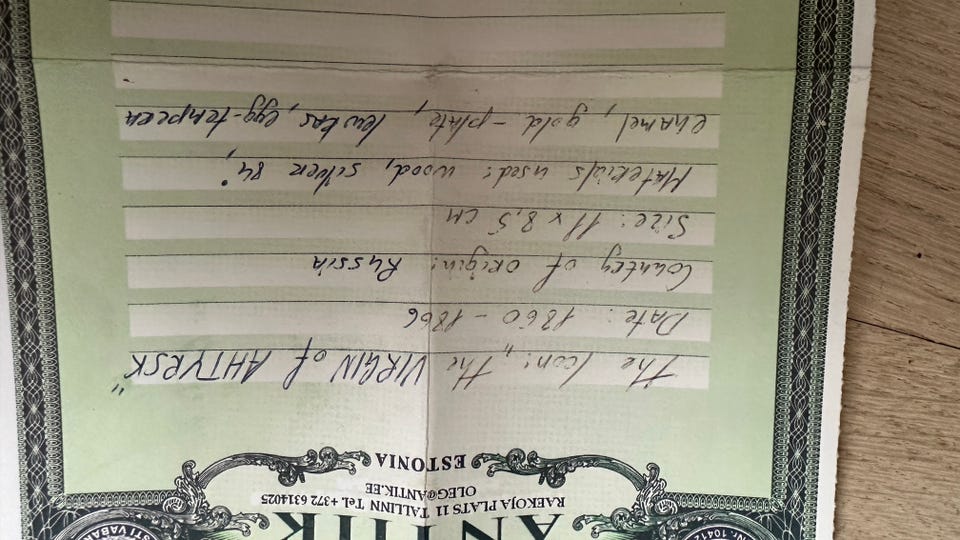 ANTIK
RAEKOJA PLATS 11 TALLINN Tel. +372 6314025
OLEG@ANTIK.EE
ESTONIA
The Icon: „The VIRGIN of AHTYRSK"
Date: 1860 - 1866
Country of origin: Russia
Size: 11 x 8,5 cm
Materials used: wood, silver 84°,
enamel, gold-plate, levkas, egg-tempera